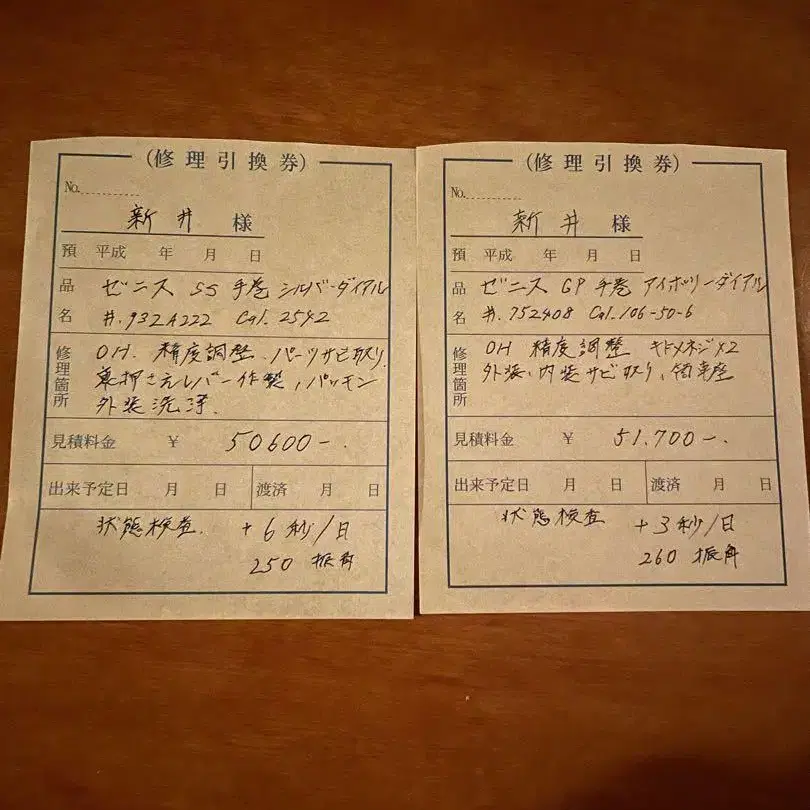 (修理引換券)
No.
新井 様
預 平成 年 月 日
品名 ゼニス SS 手巻 シルバーダイアル
#.932A222 Cal. 2542
修理箇所 OH. 精度調整. パーツサビ取り.
裏押さえレバー作製, パッキン
外装洗浄.
見積料金 ¥ 50600-.
出来予定日 月 日 渡済 月 日
状態検査. +6秒/日
250 振角
(修理引換券)
No.
新井 様
預 平成 年 月 日
品名 ゼニス GP 手巻 アイボリーダイアル
#.752408 Cal.106-50-6
修理箇所 OH 精度調整 キドメネジ×2
外装、内装サビ取り、
見積料金 ¥ 51.700-.
出来予定日 月 日 渡済 月 日
状態検査 +3秒/日
260 振角